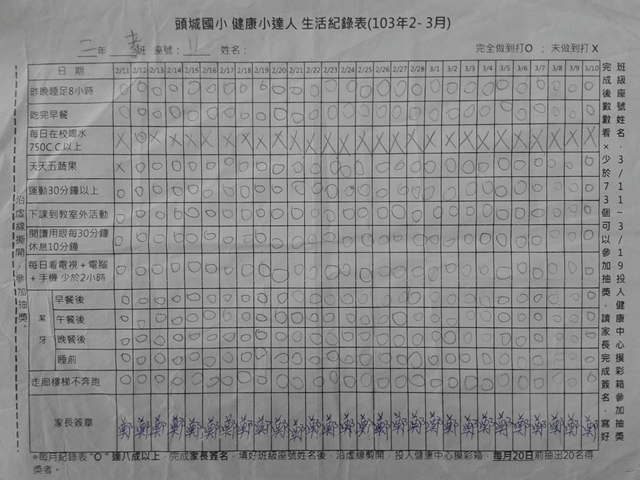 頭城國小 健康小達人 生活紀錄表(103年2- 3月)
三年 孝班 座號: 11 姓名: 完全做到打O ; 未做到打 X
日 期 2/11 2/12 2/13 2/14 2/15 2/16 2/17 2/18 2/19 2/20 2/21 2/22 2/23 2/24 2/25 2/26 2/27 2/28 3/1 3/2 3/3 3/4 3/5 3/6 3/7 3/8 3/9 3/10
昨晚睡足8小時 O O O O O O O O O O O O O O O O O O O O O O O O O O O O
吃完早餐 O O O O O O O O O O O O O O O O O O O O O O O O O O O O
每日在校喝水
750C C以上 X X X X X X X X X X X X X X X X X X X X X X X X X X X X
天天五蔬果 X O O O O O O O O O O O O O O O O O O O O O O O O O O O
運動30分鐘以上 O O O O O O O O O O O O O O O O O O O O O O O O O O O O
下課到教室外活動 O O O O O O O O O O O O O O O O O O O O O O O O O O O O
閱讀用眼每30分鐘
休息10分鐘 O O O O O O O O O O O O O O O O O O O O O O O O O O O O
每日看電視+電腦
+手機 少於2小時 O O O O O O O O O O O O O O O O O O O O O O O O O O O O
潔牙
早餐後 O O O O O O O O O O O O O O O O O O O O O O O O O O O O
午餐後 O O O O O O O O O O O O O O O O O O O O O O O O O O O O
晚餐後 O O O O O O O O O O O O O O O O O O O O O O O O O O O O
睡前 O O O O O O O O O O O O O O O O O O O O O O O O O O O O
走廊樓梯不奔跑 O O O O O O O O O O O O O O O O O O O O O O O O O O O O
家長簽章 鄭 鄭 鄭 鄭 鄭 鄭 鄭 鄭 鄭 鄭 鄭 鄭 鄭 鄭 鄭 鄭 鄭 鄭 鄭 鄭 鄭 鄭 鄭 鄭 鄭 鄭 鄭 鄭
*每月紀錄表"O"達八成以上,完成家長簽名,填好班級座號姓名後,沿虛線剪開,投入健康中心摸彩箱,每月20日前抽出20名得
獎者。
沿虛線撕開,參加抽獎。